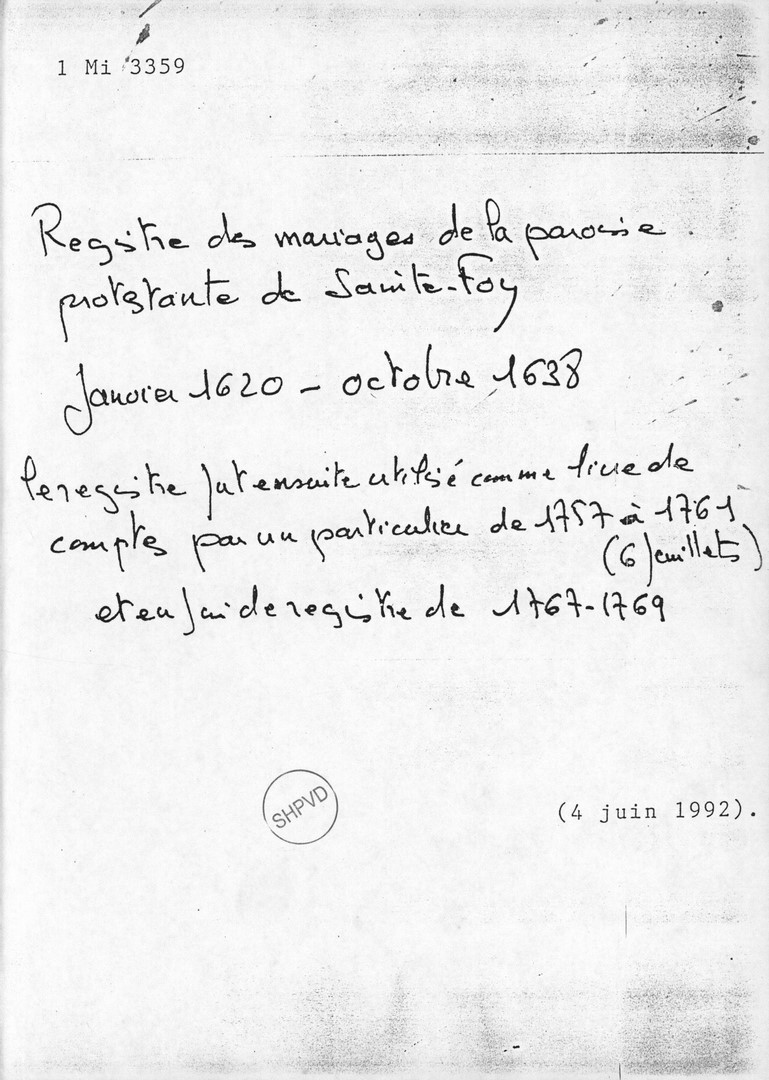 1 Mi 3359
Registre des mariages de la paroisse
protestante de Sainte-Foy
Janvier 1620 - octobre 1638
le registre fut ensuite utilisé comme livre de
comptes par un particulier de 1757 à 1761
(6 feuillets)
et en fin de registre de 1767-1769
SHPVD
(4 juin 1992).